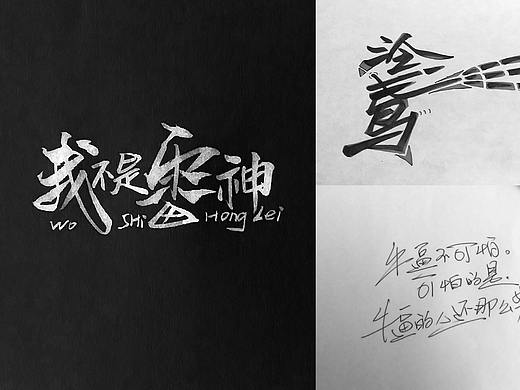 我不是雷神
Wo SHi Hong Lei
牛逼不可怕。
可怕的是.
牛逼的人还那么